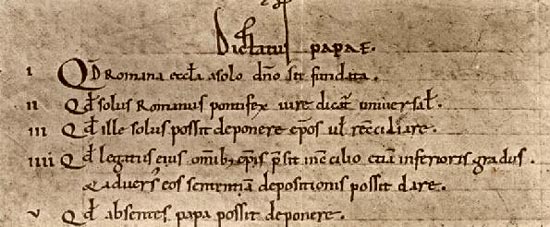 Dictatus papae.
I Qd Romana eccła a solo dño sit fundata.
II Qd solus Romanus pontifex iure dicat universał.
III Qd ille solus possit deponere epōs uł reconciliare.
IIII Qd legatus eius omnibꝫ epīs presit in concilio etiam inferioris gradus.
& adversus eos sententiam depositionis possit dare.
V Qd absentes papa possit deponere.